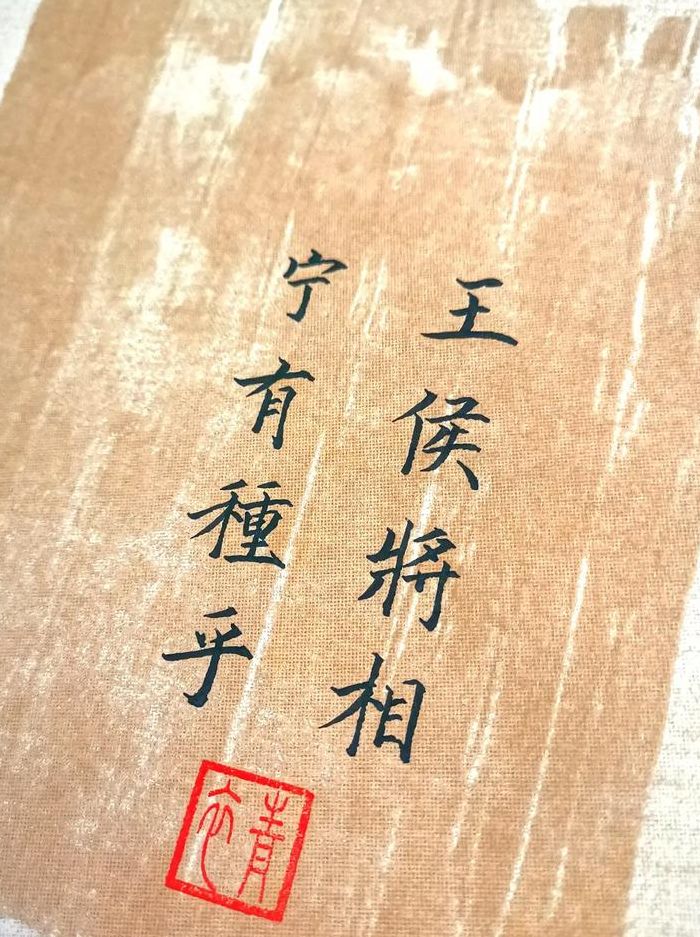 王侯將相
宁有種乎
青衣